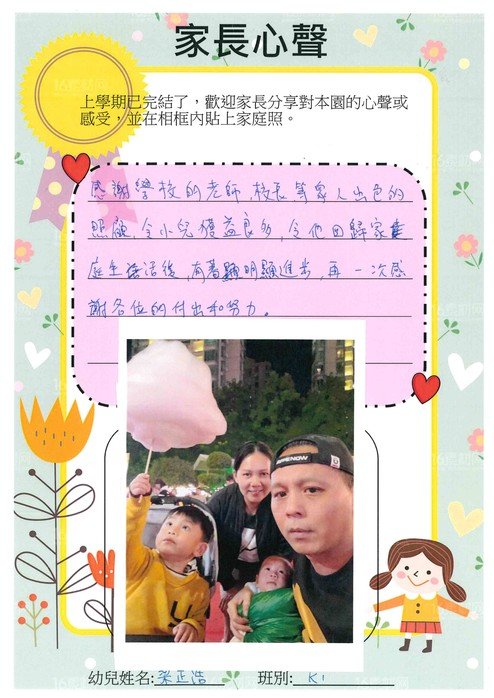 家長心聲
上學期已完結了，歡迎家長分享對本園的心聲或
感受，並在相框內貼上家庭照。
感謝學校的老師,校長等眾人出色的
照顧,令小兒獲益良多,令他回歸家
庭生活後,有著明顯進步,再一次感
謝各位的付出和努力。
幼兒姓名: 梁正浩 班別: K1